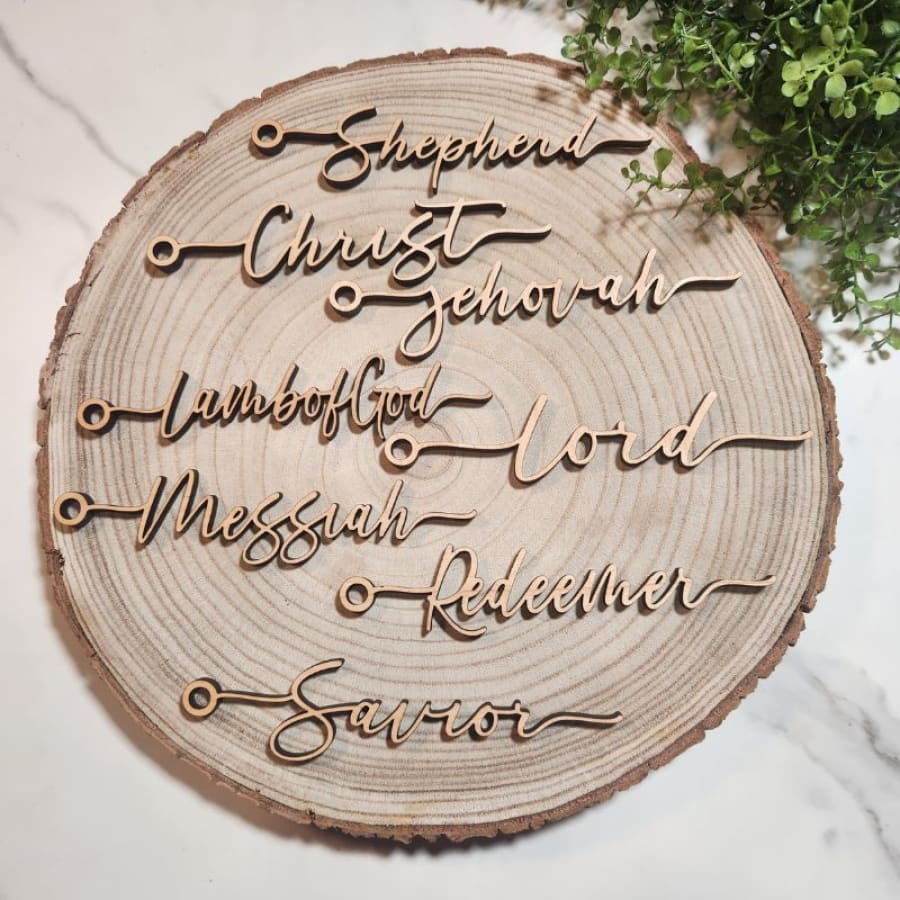 Shepherd
Christ
Jehovah
LambofGod
Lord
Messiah
Redeemer
Savior